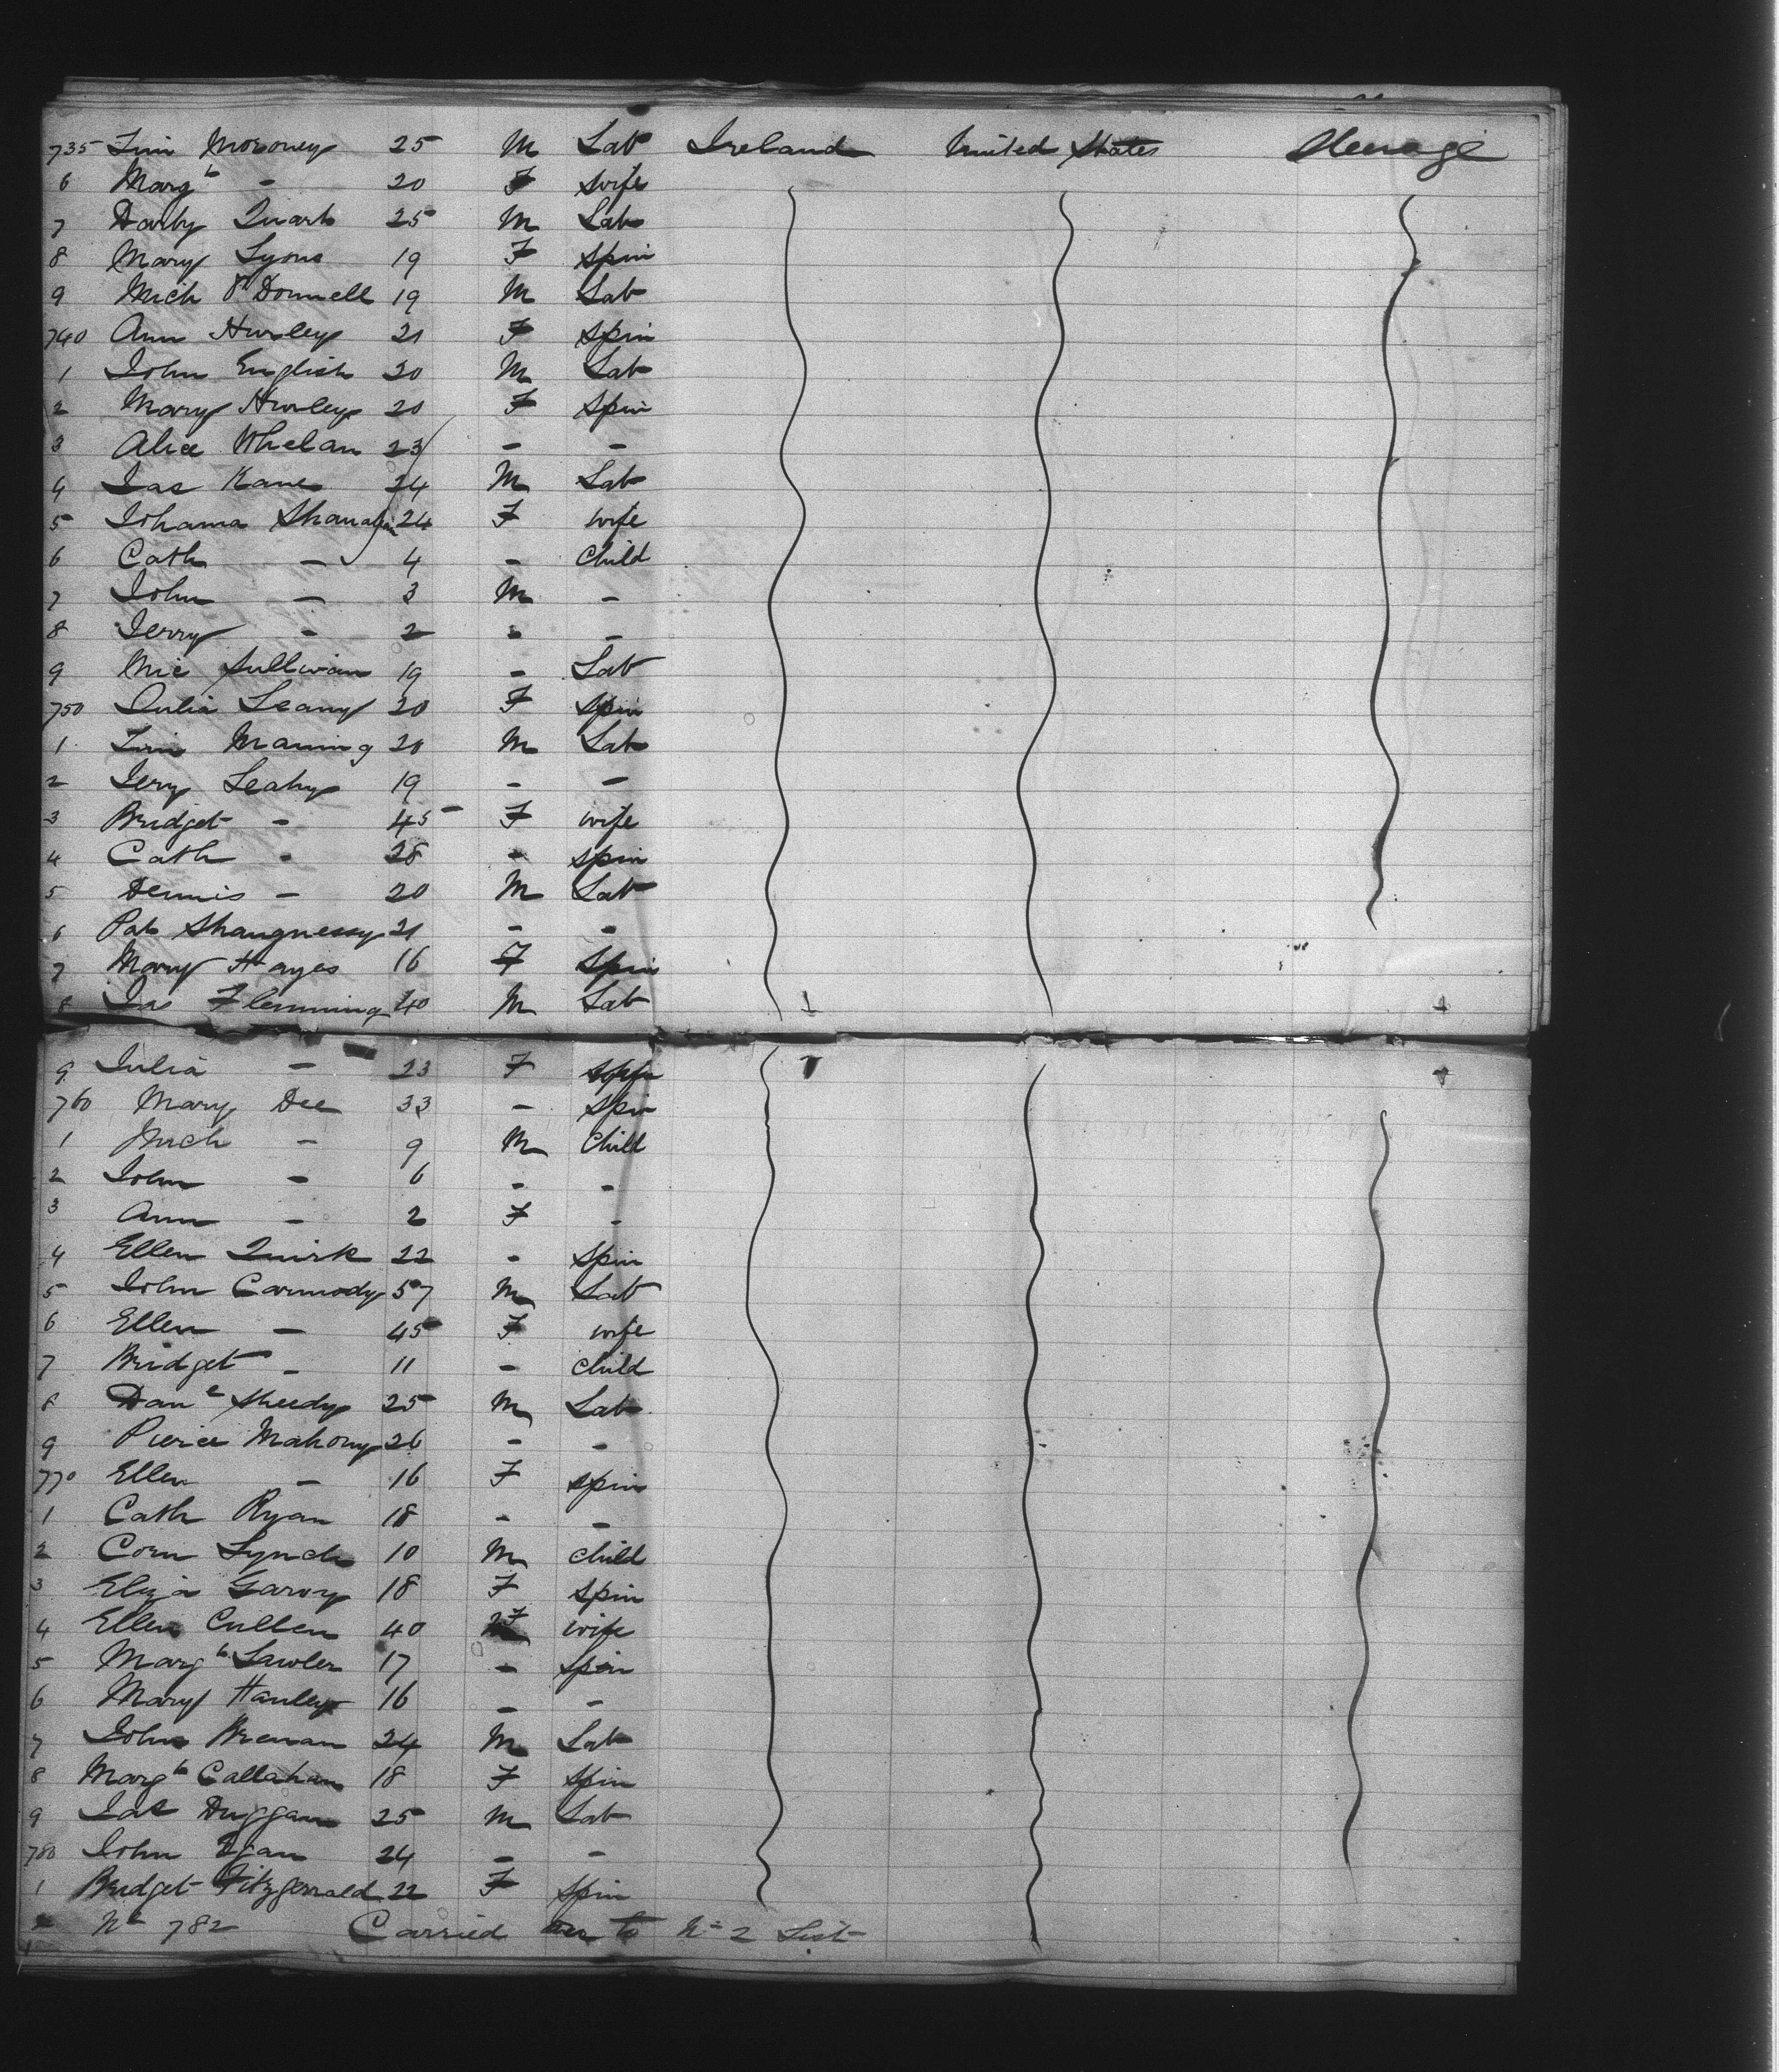 735 Tim Moroney 25 M Lab Ireland United States Steerage
6 Margt - 20 F wife
7 Darby Quark 25 M Lab
8 Mary Lyons 19 F Spin
9 Mich O'Donnell 19 M Lab
740 Ann Hurley 21 F Spin
1 John English 20 M Lab
2 Mary Hurley 20 F Spin
3 Alice Whelan 23 - -
4 Jas Kane 24 M Lab
5 Johana Shanahan 24 F wife
6 Cath - 4 - Child
7 John - 3 M -
8 Jerry - 2 - -
9 Mic Sullivan 19 - Lab
750 Julia Leany 20 F Spin
1 Tim Maning 20 M Lab
2 Jery Leahy 19 - -
3 Bridget - 45 F wife
4 Cath - 28 - spin
5 Dennis - 20 M Lab
6 Pat Shaugnessy 21 - -
7 Mary Hayes 16 F Spin
8 Jas Flemming 40 M Lab
9 Julia - 23 F
760 Mary Dee 33 - Spin
1 Mich - 9 M Child
2 John - 6 - -
3 Ann - 2 F -
4 Ellen Quirk 22 - Spin
5 John Carmody 57 M Lab
6 Ellen - 45 F wife
7 Bridget - 11 - child
8 Danl Sheedy 25 M Lab
9 Pierce Mahony 26 - -
770 Ellen - 16 F spin
1 Cath Ryan 18 - -
2 Corn Lynch 10 M child
3 Eliza Garvy 18 F spin
4 Ellen Cullen 40 F wife
5 Margt Lawler 17 - spin
6 Mary Hanley 16 - -
7 John Brenan 24 M Lab
8 Margt Callahan 18 F spin
9 Jas Duggan 25 M Lab
780 John Egan 24 - -
1 Bridget Fitzgerrald 22 F spin
2 No 782 Carried on to No 2 List